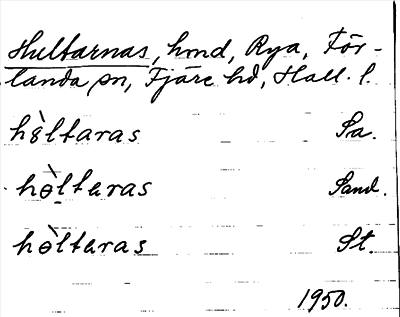 Hultarnas, hmd, Rya, För-
landa sn, Fjäre hd, Hall. l.
hòltaras Sa.
hɵ̀ltaras Sand.
hɵ̀ltaras St.
1950.